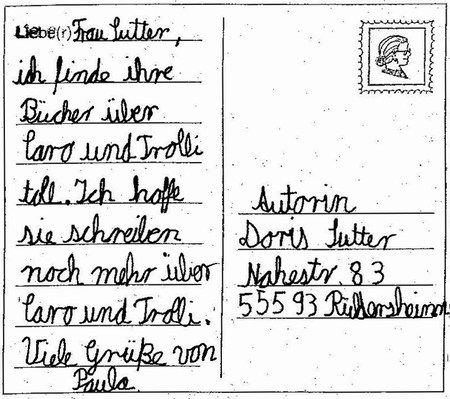 Liebe(r) Frau Sutter,
ich finde ihre
Bücher über
Caro und Trolli
toll. Ich hoffe
sie schreiben
noch mehr über
Caro und Trolli.
Viele Grüße von
Paula
Autorin
Doris Sutter
Nahestr. 83
55593 Rüdesheim